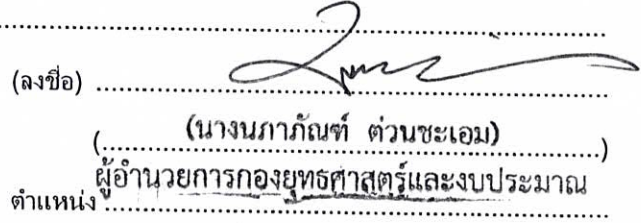 (ลงชื่อ)
(นางนภาภัณฑ์ ต่วนชะเอม)
ตำแหน่ง ผู้อำนวยการกองยุทธศาสตร์และงบประมาณ